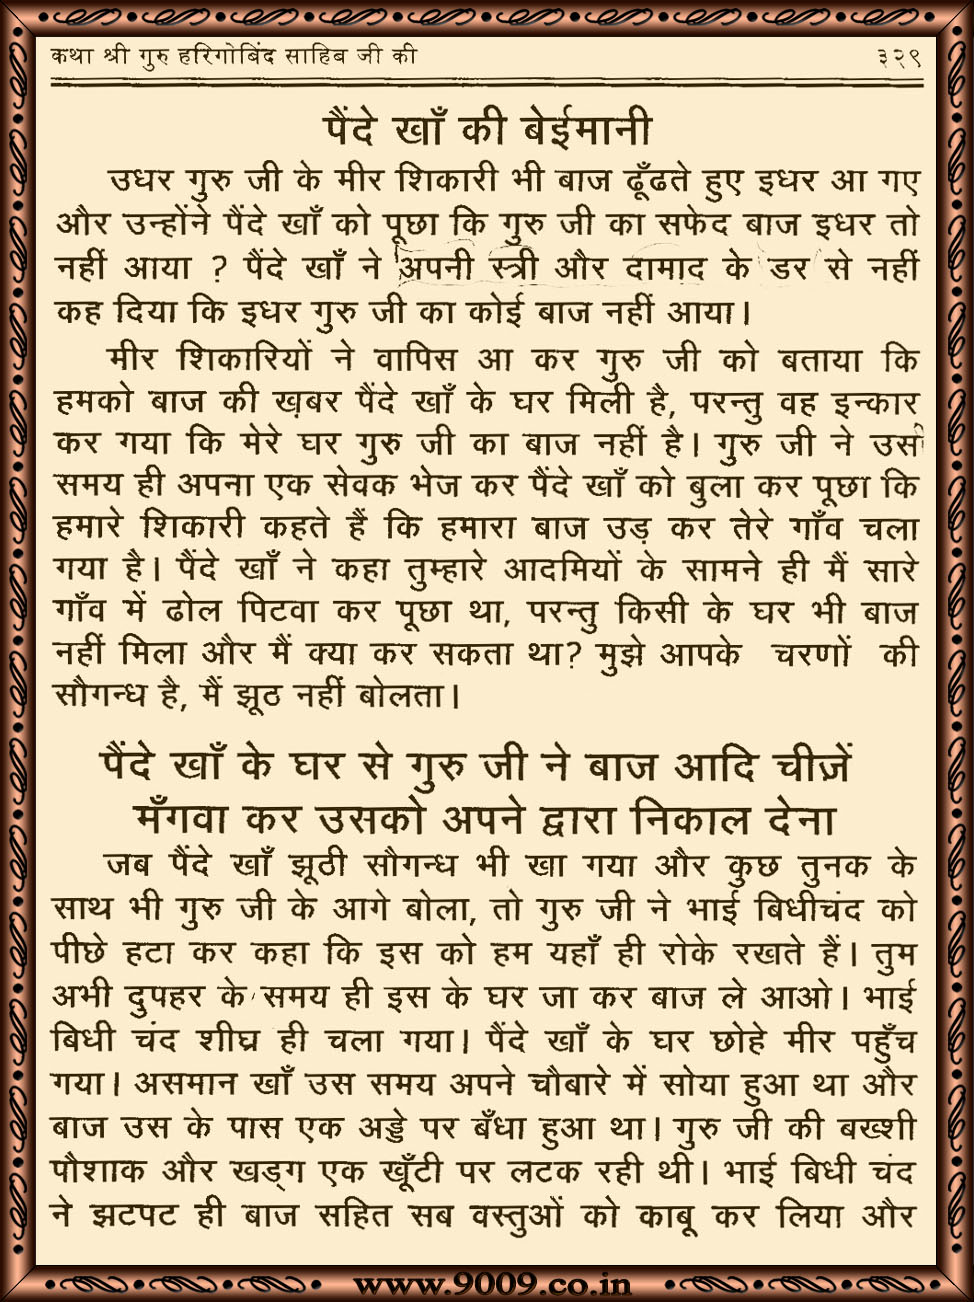 कथा श्री गुरु हरिगोबिंद साहिब जी की ३२९
पैंदे खाँ की बेईमानी
उधर गुरु जी के मीर शिकारी भी बाज ढूँढते हुए इधर आ गए
और उन्होंने पैंदे खाँ को पूछा कि गुरु जी का सफेद बाज इधर तो
नहीं आया ? पैंदे खाँ ने अपनी स्त्री और दामाद के डर से नहीं
कह दिया कि इधर गुरु जी का कोई बाज नहीं आया।
मीर शिकारियों ने वापिस आ कर गुरु जी को बताया कि
हमको बाज की ख़बर पैंदे खाँ के घर मिली है, परन्तु वह इन्कार
कर गया कि मेरे घर गुरु जी का बाज नहीं है। गुरु जी ने उसी
समय ही अपना एक सेवक भेज कर पैंदे खाँ को बुला कर पूछा कि
हमारे शिकारी कहते हैं कि हमारा बाज उड़ कर तेरे गाँव चला
गया है। पैंदे खाँ ने कहा तुम्हारे आदमियों के सामने ही मैं सारे
गाँव में ढोल पिटवा कर पूछा था, परन्तु किसी के घर भी बाज
नहीं मिला और मैं क्या कर सकता था? मुझे आपके चरणों की
सौगन्ध है, मैं झूठ नहीं बोलता।
पैंदे खाँ के घर से गुरु जी ने बाज आदि चीज़ें
मँगवा कर उसको अपने द्वारा निकाल देना
जब पैंदे खाँ झूठी सौगन्ध भी खा गया और कुछ तुनक के
साथ भी गुरु जी के आगे बोला, तो गुरु जी ने भाई बिधीचंद को
पीछे हटा कर कहा कि इस को हम यहाँ ही रोके रखते हैं। तुम
अभी दुपहर के समय ही इस के घर जा कर बाज ले आओ। भाई
बिधी चंद शीघ्र ही चला गया। पैंदे खाँ के घर छोहे मीर पहुँच
गया। असमान खाँ उस समय अपने चौबारे में सोया हुआ था और
बाज उस के पास एक अड्डे पर बँधा हुआ था। गुरु जी की बख्शी
पौशाक और खड्ग एक खूँटी पर लटक रही थी। भाई बिधी चंद
ने झटपट ही बाज सहित सब वस्तुओं को काबू कर लिया और
www.9009.co.in